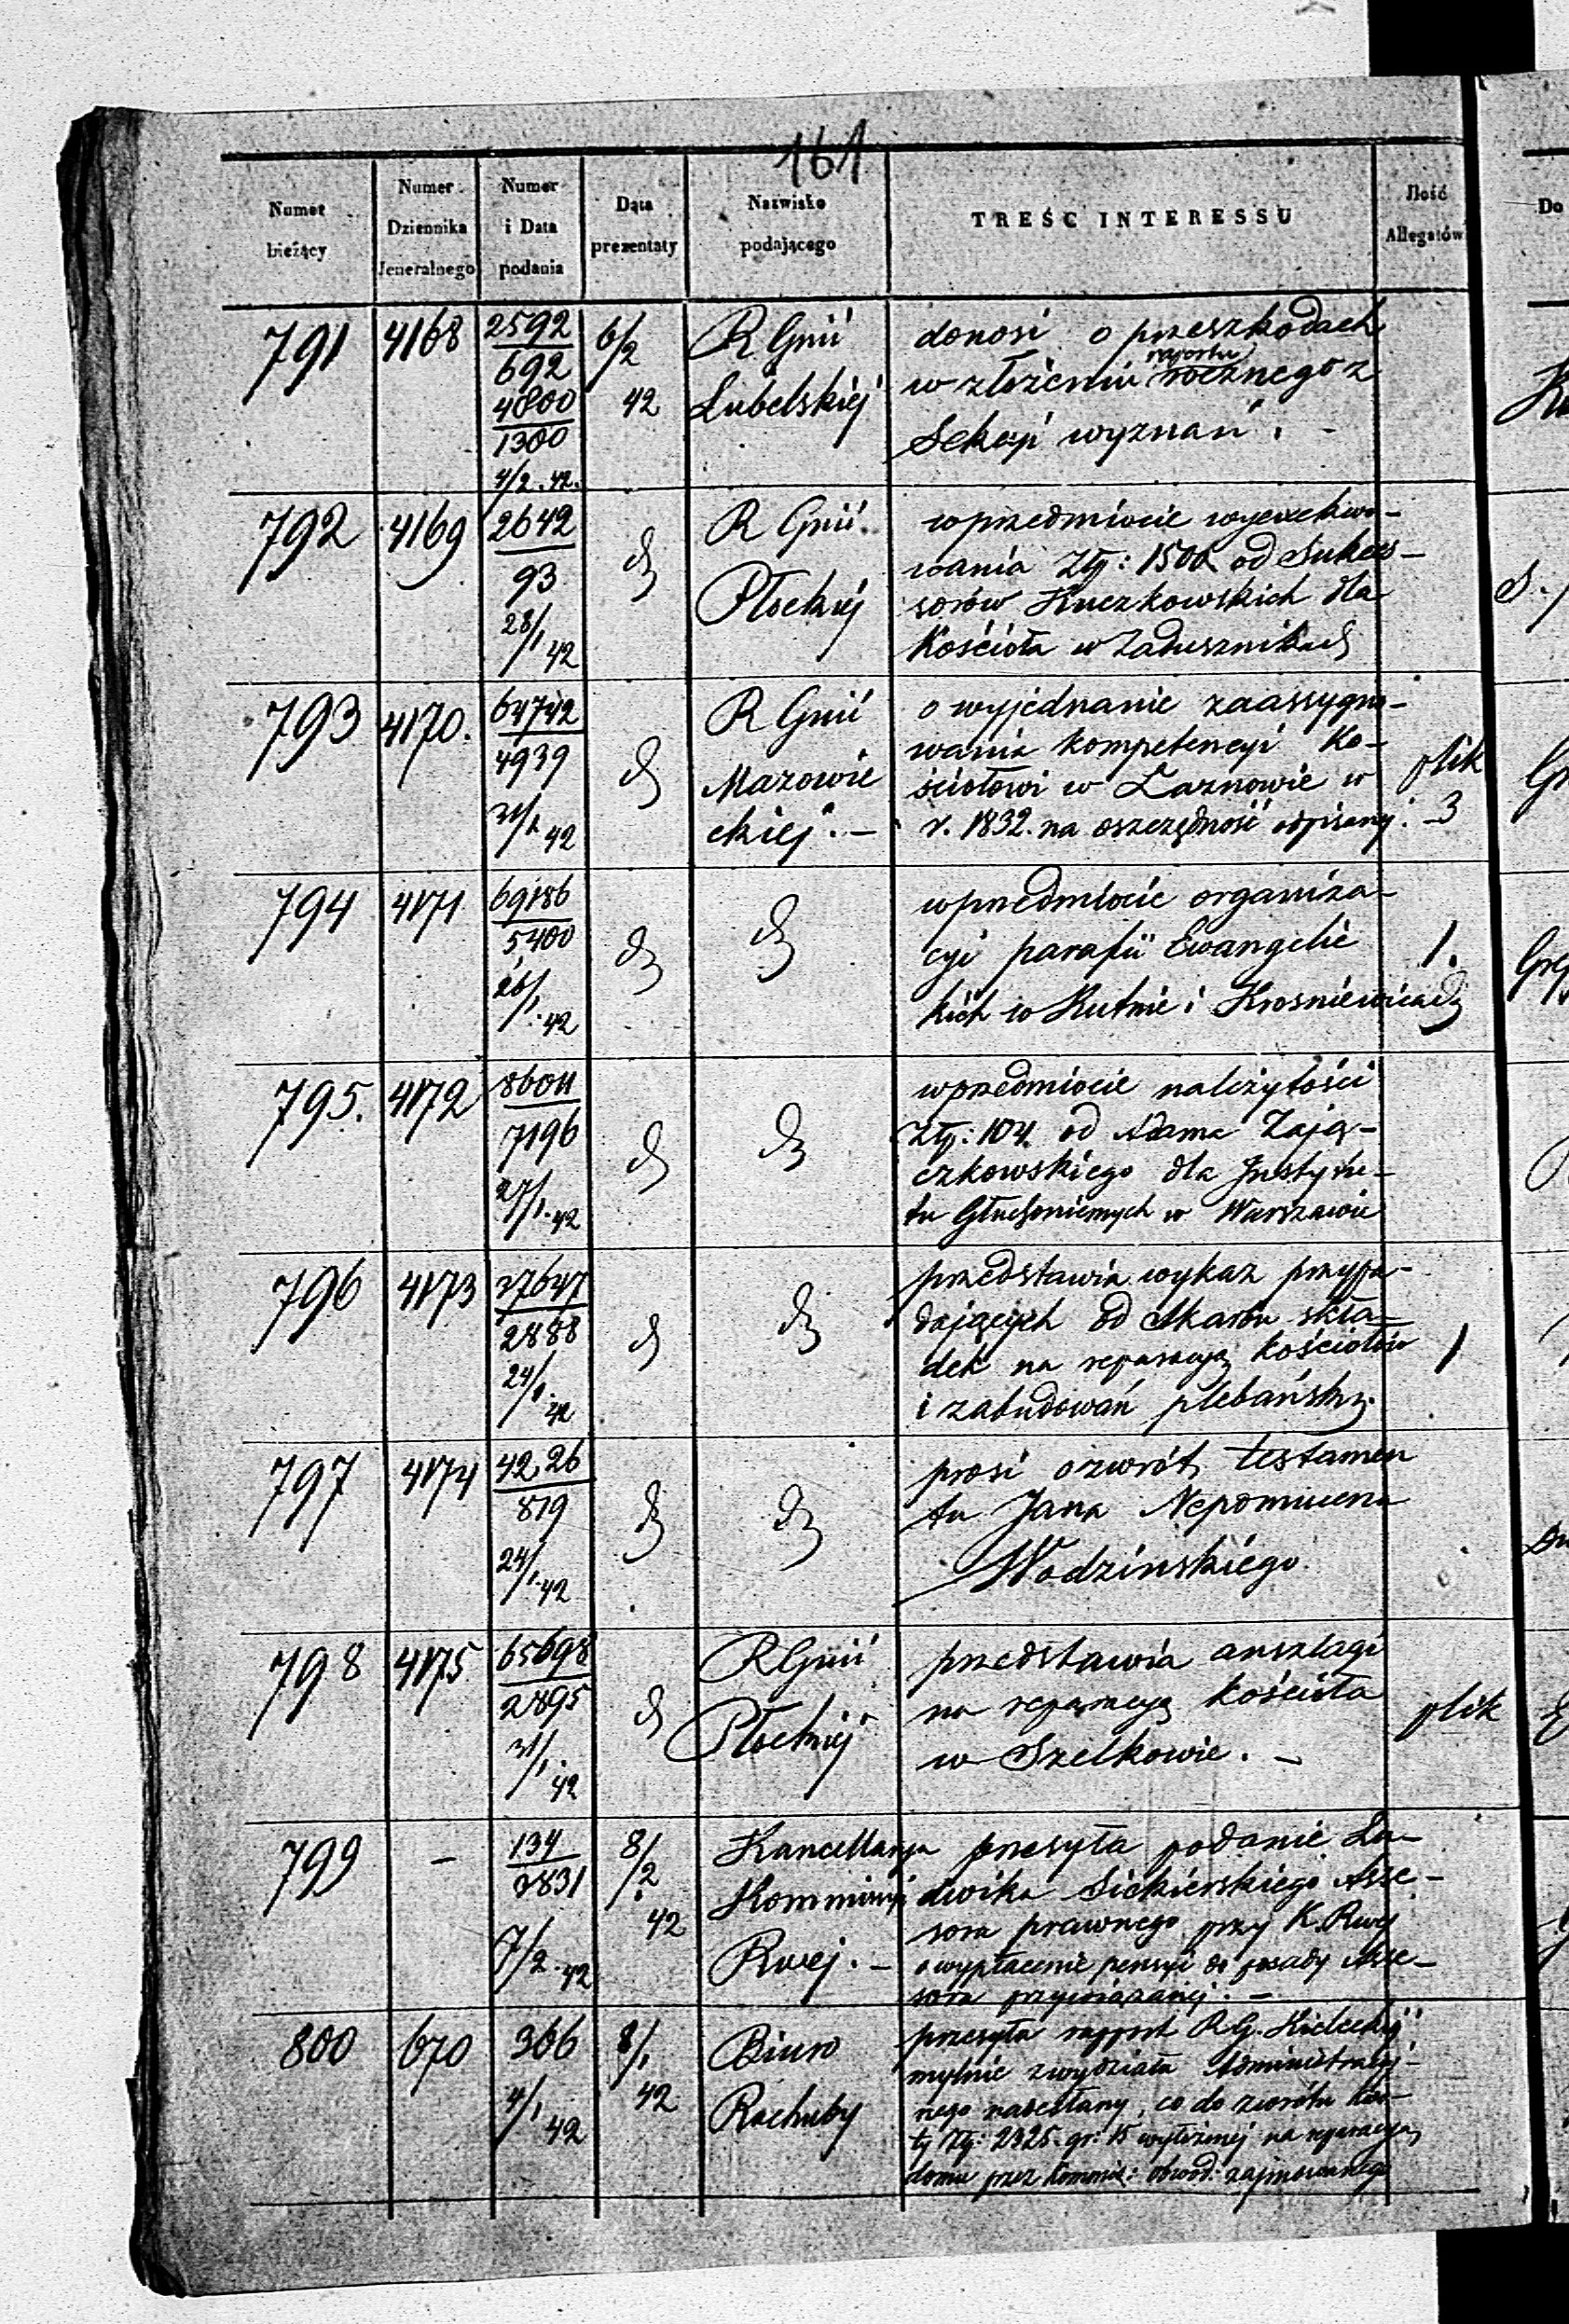 161
Numer bieżący
Numer Dziennika Jeneralnego
Numer i Data podania
Data prezentaty
Nazwisko podającego
TREŚĆ INTERESSU
Ilość Allegatów
Do
791 4168 2592/692 4800/1300 4/2.42. 6/2 42 R Gnii Lubelskiej
donosi o przeszkodach
raportu
w złożeniu rocznego z
Sekcyi wyznań. -
792 4169 2642/93 28/1 42 d R Gnii. Płockiej
w przedmiocie wyexekwo-
wania Złp: 1500 od Sukces-
sorów Kuczkowskich dla
Kościoła w Zadusznikach
793 4170. 64742/4939 31/1 42 d R Gnii Mazowie ckiej. -
o wyjednanie zaassygno-
wania kompetencyi Ko-
ściołowi w Łaznowie w
r. 1832. na oszczędność odpisanej.
plik 3
794 4171 69186/5400 26/1.42 d d
w przedmiocie organiza-
cyi parafii Ewangelic
kich w Kutnie i Krosniewicach
1.
795. 4172 8604/7196 27/1.42 d d
w przedmiocie należytości
Złp: 104. od Adama Zają-
czkowskiego dla Instytu-
tu Głuchoniemych w Warszawie
796 4173 27647/2888 24/1.42 d d
przedstawia wykaz przypa-
dających od Skarbu skła-
dek na reparacyą kościołów
i zabudowań plebańskich
1
797 4174 42,26/819 24/1.42 d d
prosi o zwrót testamen
tu Jana Nepomucena
Wodzinskiego.
798 4175 65698/2895 31/1.42 d R Gnii Płockiej
przedstawia anszlagi
na reparacyą kościoła
w Szelkowie. -
plik
799 - 134/2831 7/2.42 8/2.42 Kancellarya Kommissyi Rwej. -
przesyła podanie Lu-
dwika Siekierskiego Asse-
sora prawnego przy K. Rwej
o wypłacenie pensyi do posady Asse-
sora przywiązanej. -
800 670 366 4/1 42 8/1 42 Biuro Rachuby
przesyła rapport R.G. Kieleckiej
mylnie z wydziału Administracyj-
nego nadesłany, co do zwrótu kwo-
ty Złp: 2325. gr: 15 wyłożonej na reparacyą
domu przez Kommis: obwod: zajmowanego